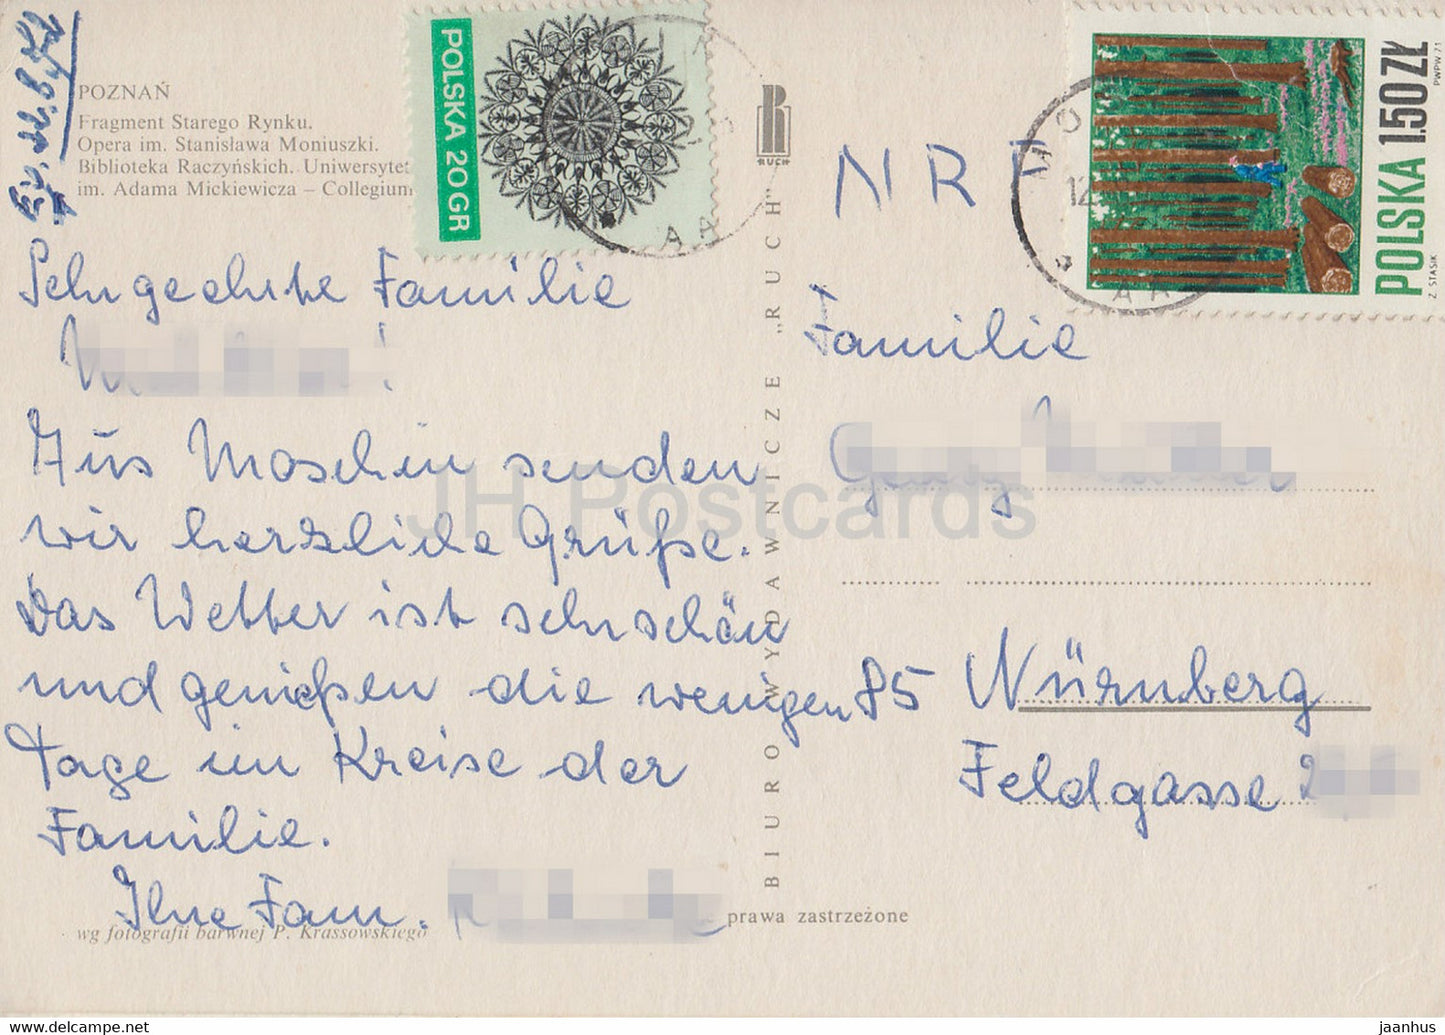 POZNAŃ
Fragment Starego Rynku.
Opera im. Stanisława Moniuszki.
Biblioteka Raczyńskich. Uniwersytet
im. Adama Mickiewicza – Collegium
POLSKA 20 GR
RUCH
NRF
POLSKA 1.50 ZŁ
PWPW 71
Z. STASIK
Sehr geehrte Familie
Aus Moschin senden
wir herzliche Grüße.
Das Wetter ist sehr schön
und genießen die wenigen
Tage im Kreise der
Familie.
Ihre Fam.
wg fotografii barwnej P. Krassowskiego
BIURO WYDAWNICZE „RUCH"
prawa zastrzeżone
Familie
Georg
85 Nürnberg
Feldgasse 2
JH Postcards
hip-postcard.com/store/jaanhus